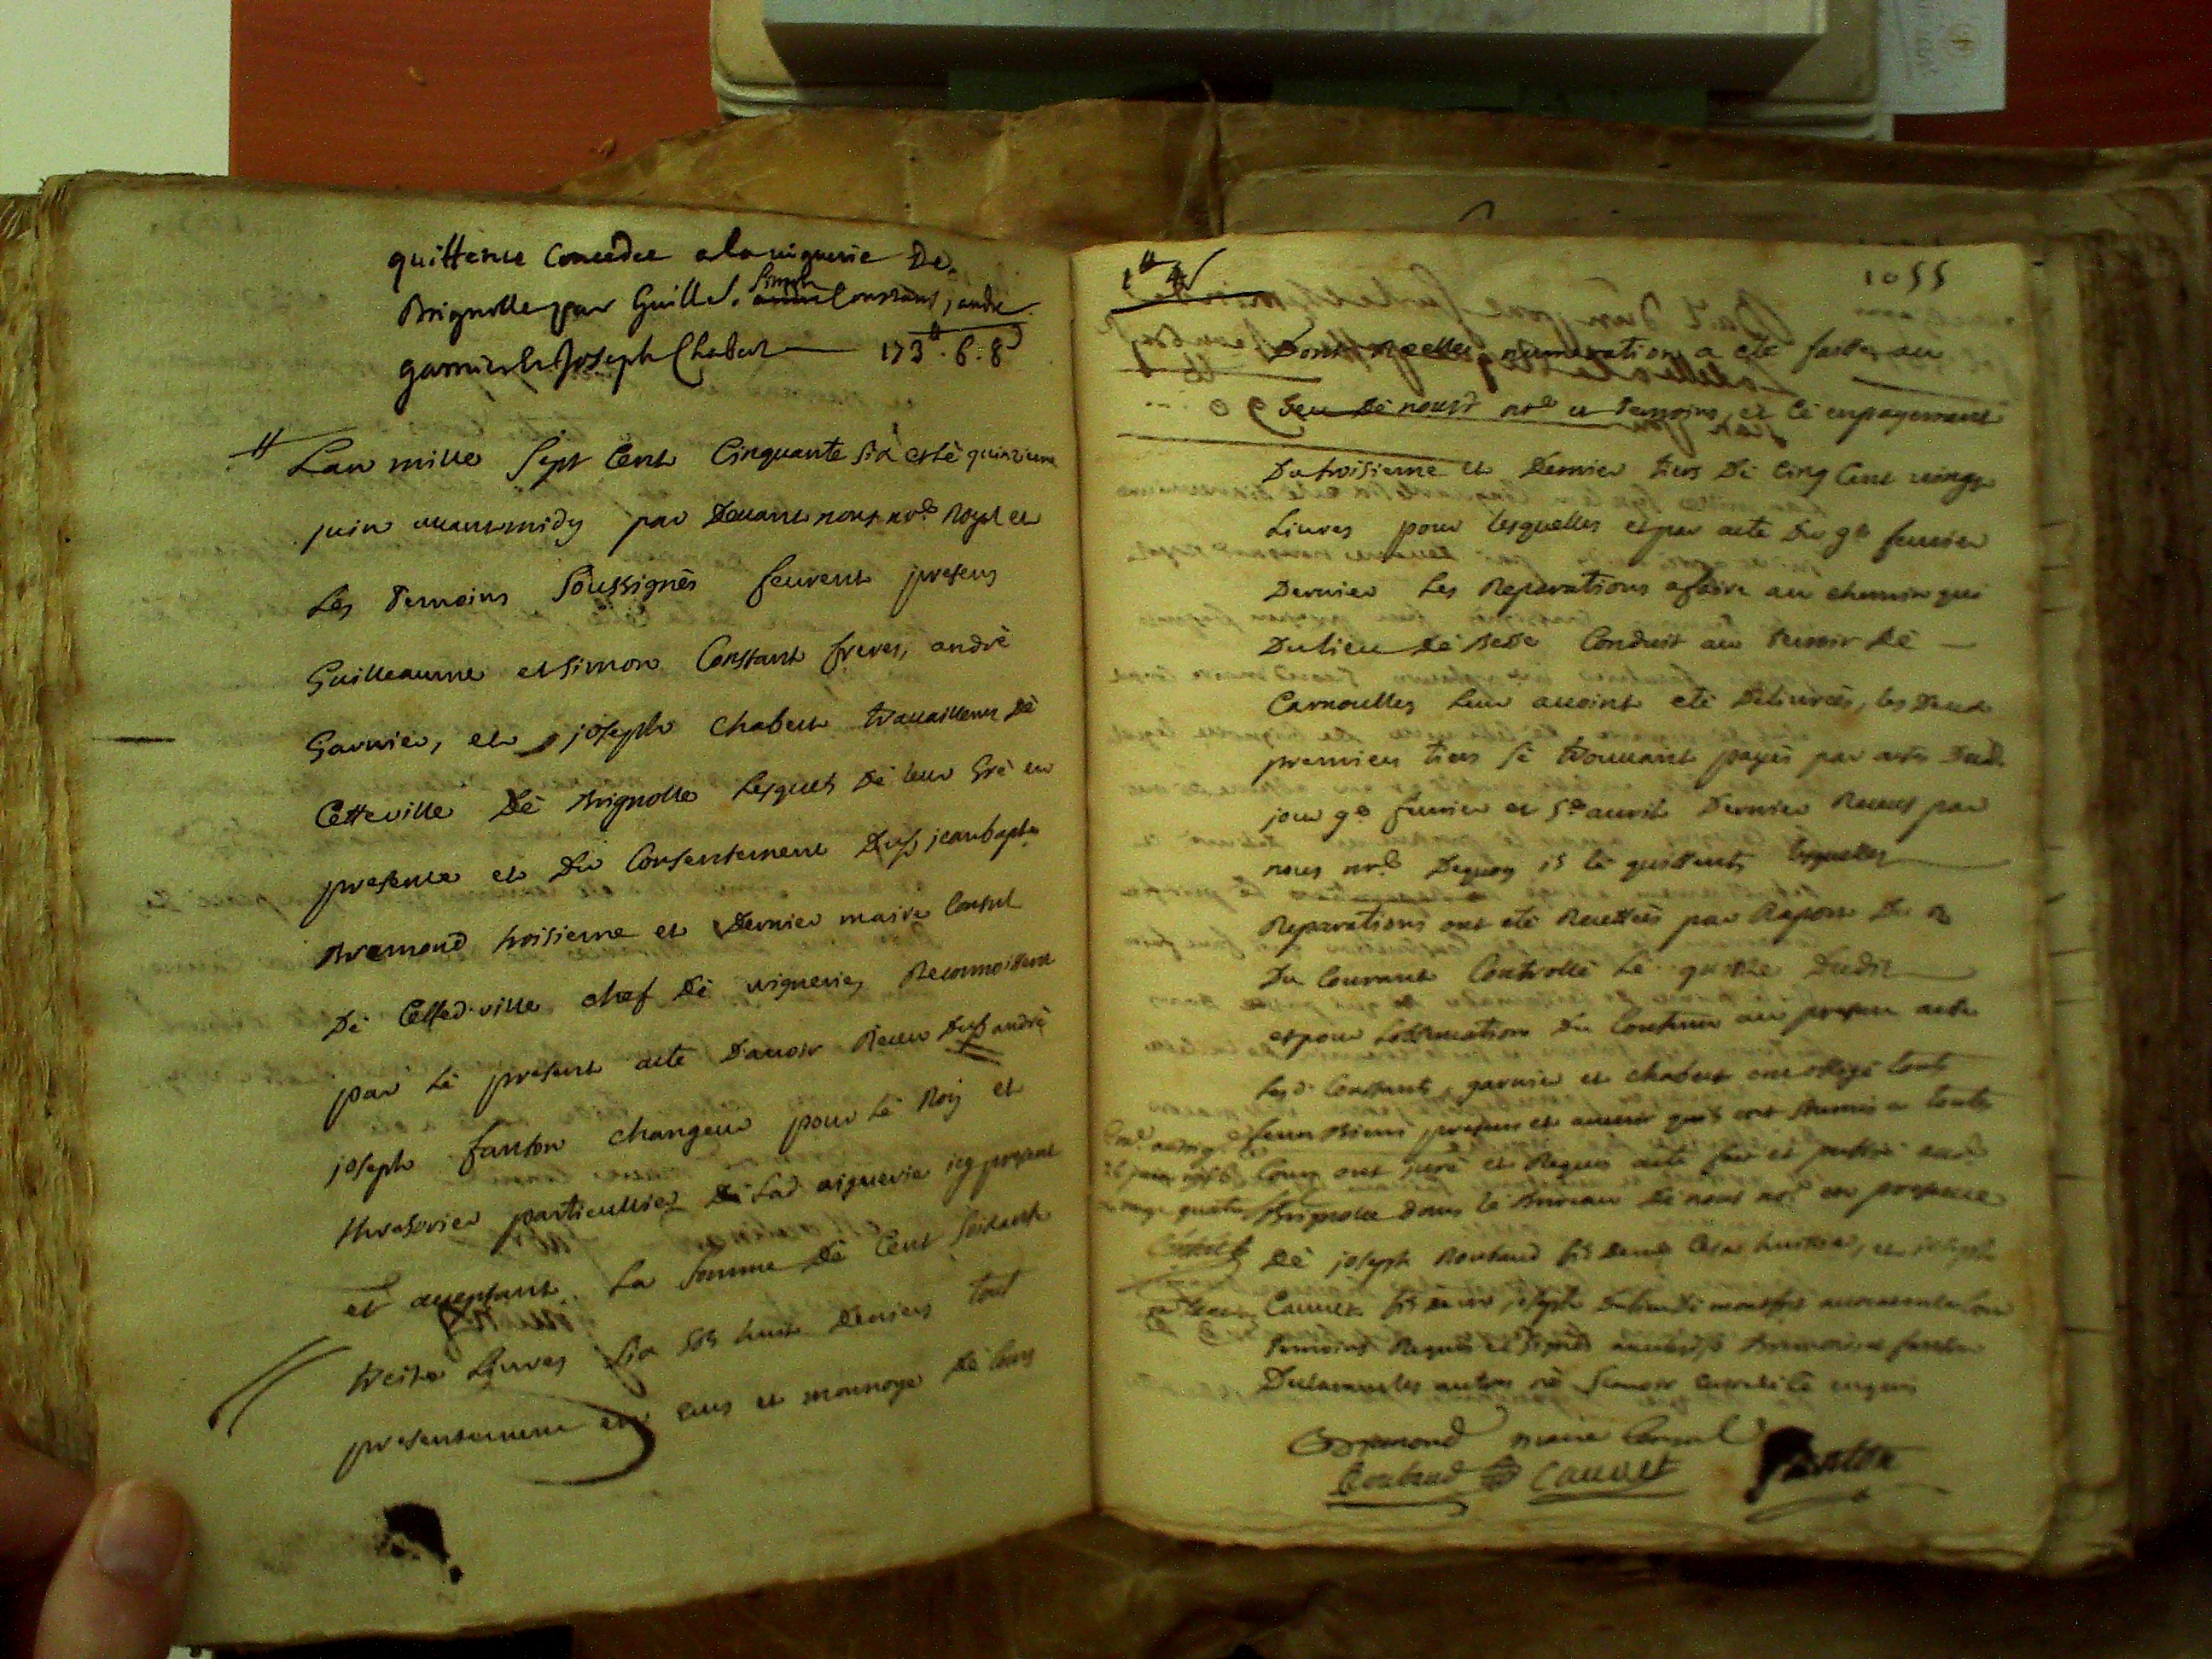 quittence Concedee a la viguerie De
Brignolle par Guille. Simon Constans, andre
garnier & Joseph Chabert — 173# . 6 . 8 d
Lan mille Sept Cent Cinquante Six et lè quinzieme
juin avant midy par Devant nous nore. Royal et
Les Temoins Soussignès feurent presens
Guilleaume et Simon Constant freres, andrè
Garnier, et joseph chabert travailleurs Dè
Cette ville Dè Brignolle Lesquels Dè leur Grè en
presence et Du Consentement Du sr jean bapte
Bremond troisieme et Dernier maire Consul
Dè Cetted. ville chef Dè viguerie, Reconnoissent
par Lè present acte D'avoir Receu Du sr andrè
joseph fanton changeur pour Lè Roy et
thresorier particullier Dè Lad viguerie icy present
et aceptant La Somme Dè Cent Soixante
treize Livres Six sols huit Deniers tout
presentement en eeus et monnoye Dè Cours
1055
Dont Reelle numeration a etè faitte au
veu Dè nousd nore et Temoins, et Cè en payement
Du troisieme et Dernier tiers Dè Cinq Cent vingt
Livres pour lesquelles et par acte Du 9e fevrier
Dernier Les Reparations a faire au chemin que
Du lieu Dè Besse Conduit au terroir Dè —
Carnoulles Leur avoint etè Delivrèes, les Deux
premiers tiers Sè trouvant payès par actes Dud.
jour 9e fevrier et 5e avril Dernier Receus par
nous nore. Dequoy is lè quittent, lesquelles
Reparations ont etè Recettèes par Raport Du
Du Courant Controllè Lè quatre Dudit
et pour Lobservation Du Contenu au present acte
Les d. Constant, garnier et chabert ont obligè tout
leurs Biens presens et avenir quils ont Soumis a toutes
Cours ont jurè et Requis acte fait et publiè aud.
Brignolle dans lè Bureau Dè nous nore. en presence
Dè joseph Roubaud
Cauvet
temoins Requis et Signès
Bremond maire Consul
Roubaud Cauvet fanton